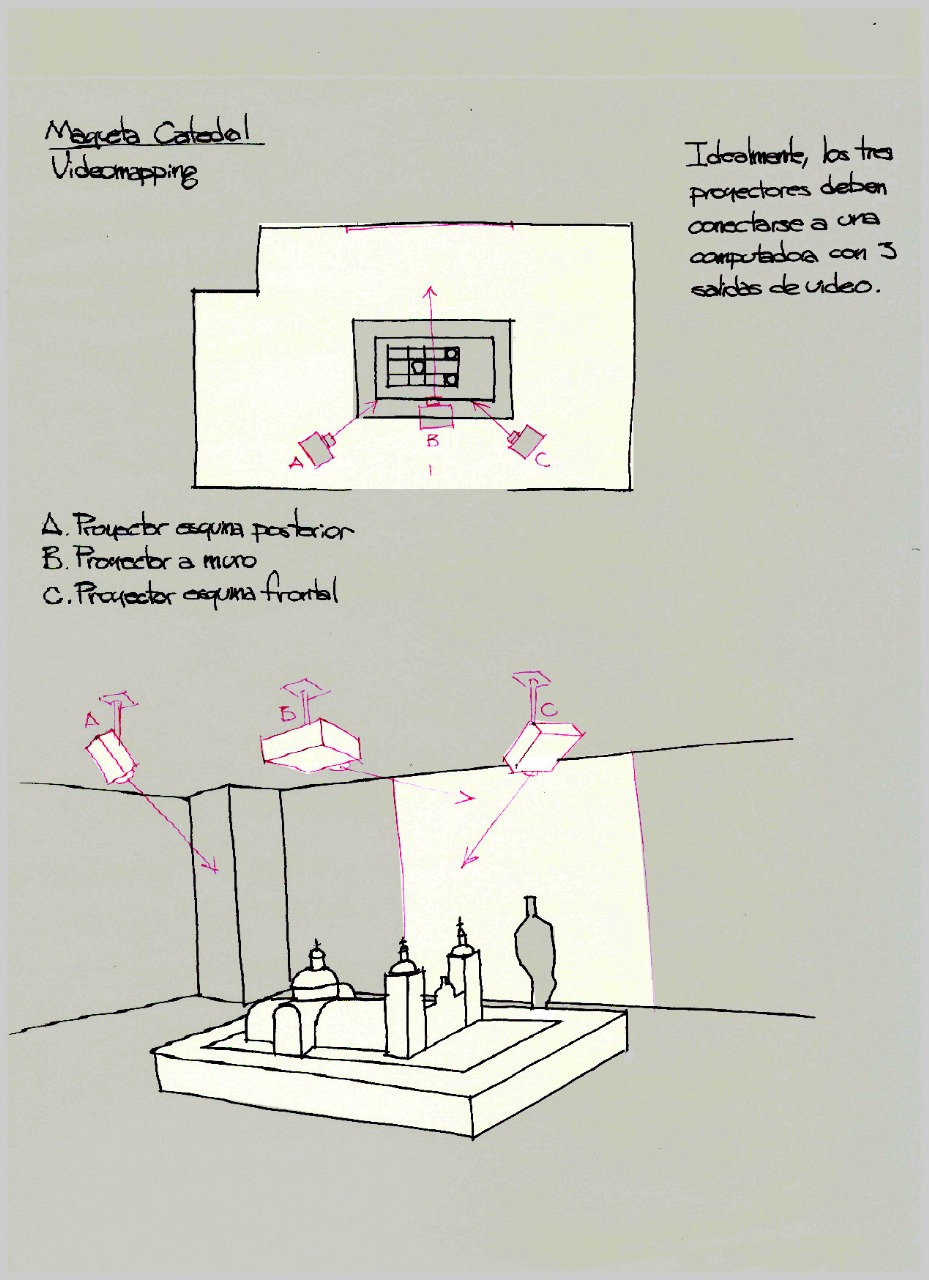 Maqueta Catedral
Videomapping
Idealmente, los tres
proyectores deben
conectarse a una
computadora con 3
salidas de video.
A
B
C
A. Proyector esquina posterior
B. Proyector a muro
C. Proyector esquina frontal
A
B
C